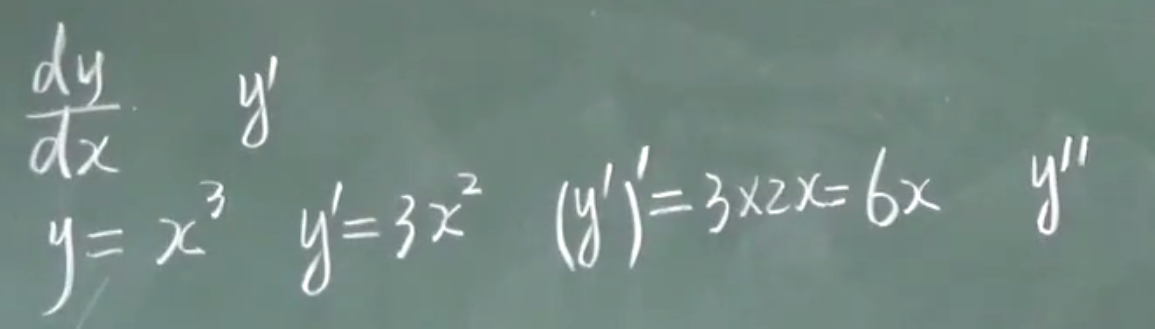 dy/dx y'
y = x³ y' = 3x² (y')' = 3×2x = 6x y''